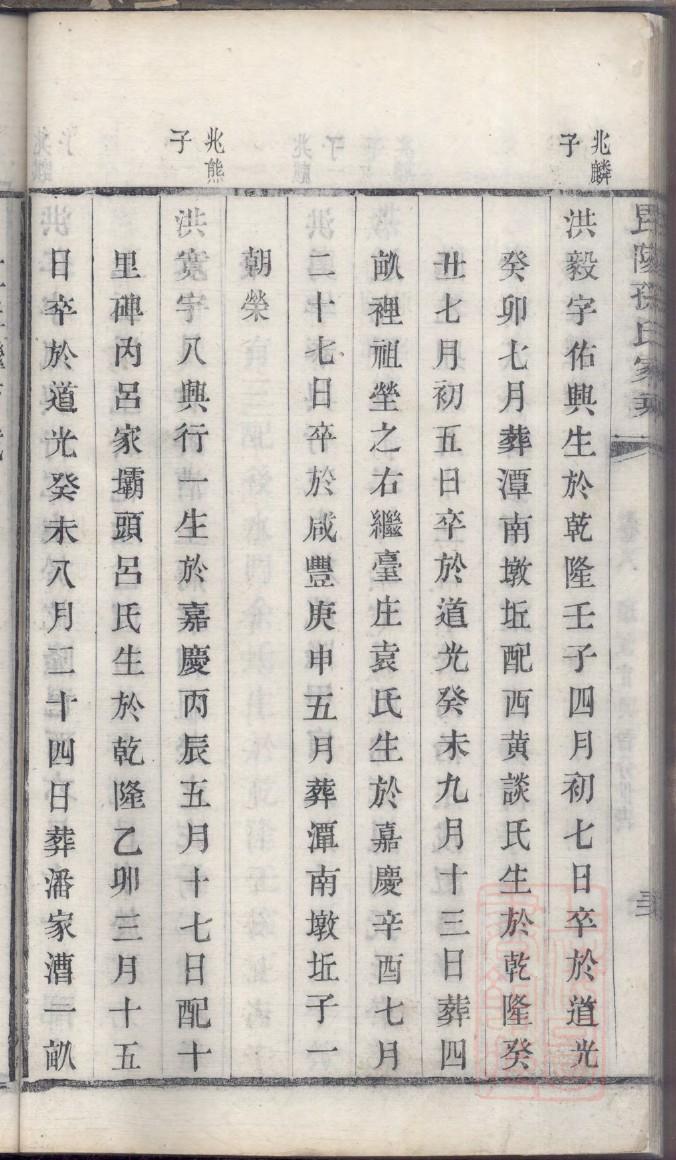 毘陵孫氏家乘
兆麟子
洪毅字佑興生於乾隆壬子四月初七日卒於道光
癸卯七月葬潭南墩坵配西黃談氏生於乾隆癸
丑七月初五日卒於道光癸未九月十三日葬四
畝裡祖塋之右繼臺庄袁氏生於嘉慶辛酉七月
二十七日卒於咸豐庚申五月葬潭南墩坵子一
朝榮
兆熊子
洪寬字八興行一生於嘉慶丙辰五月十七日配十
里碑內呂家壩頭呂氏生於乾隆乙卯三月十五
日卒於道光癸未八月二十四日葬潘家漕一畝